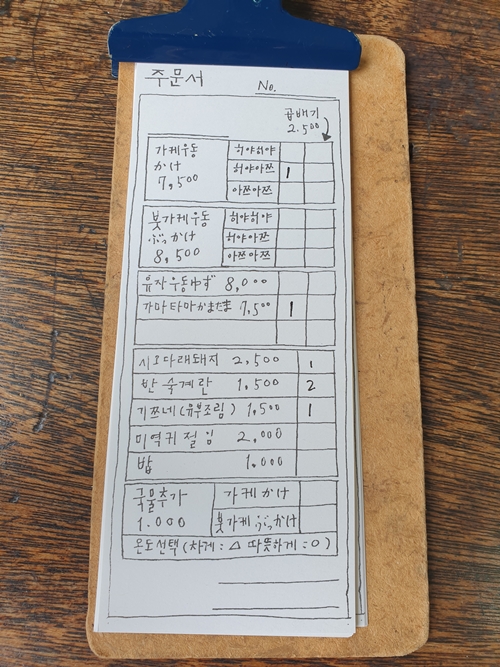 주문서
No.
곱배기
2.500
가케우동 히야히야
かけ 히야아쯔 1
7,500 아쯔아쯔
붓가케우동 히야히야
ぶっかけ 히야아쯔
8,500 아쯔아쯔
유자우동ゆず 8,000
가마타마かまたま 7,500 1
시오다래돼지 2,500 1
반숙계란 1,500 2
기쯔네(유부조림) 1,500 1
미역귀절임 2,000
밥 1.000
국물추가 가케かけ
1.000 붓가케ぶっかけ
온도선택(차게:△ 따뜻하게:○)